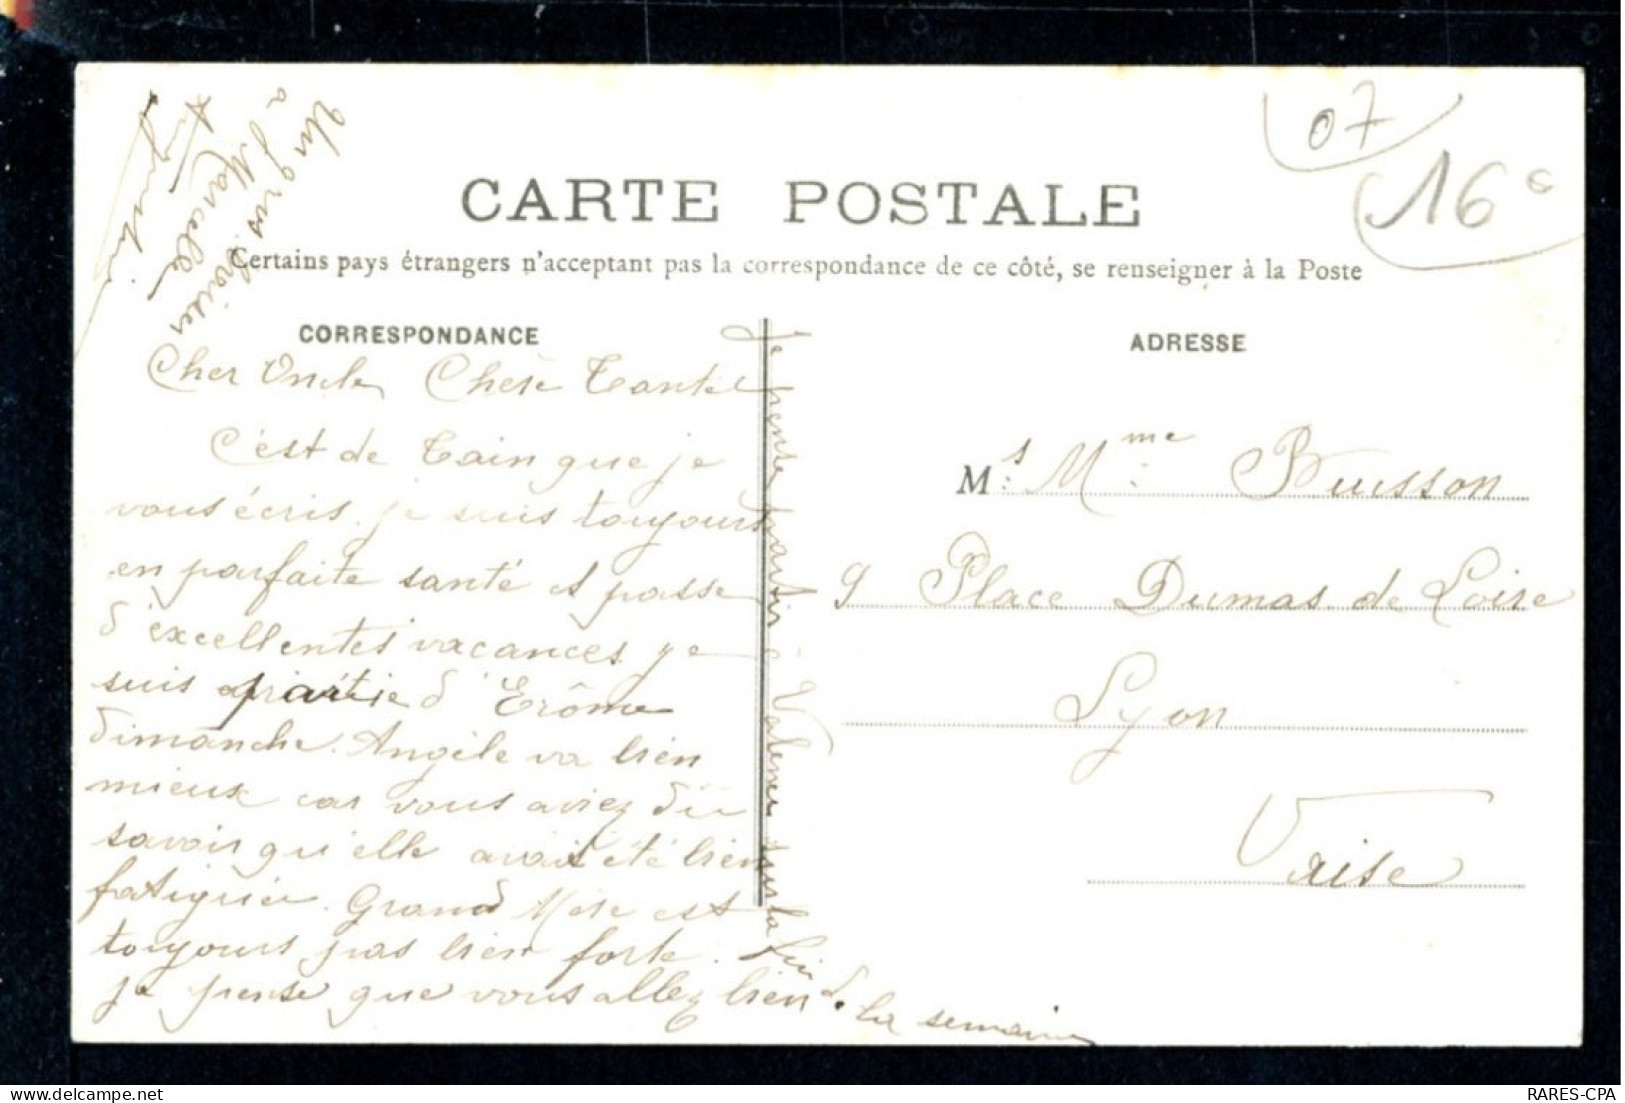 Un gros baiser
a Marcelle
Augustine
07
16
CARTE POSTALE
Certains pays étrangers n'acceptant pas la correspondance de ce côté, se renseigner à la Poste
CORRESPONDANCE
Cher Oncle, Chère Tante
C'est de Tain que je
vous écris. je suis toujours
en parfaite santé et passe
d'excellentes vacances. je
suis partie d'Erôme
dimanche. Angèle va bien
mieux car vous aviez dû
savoir qu'elle avait été bien
fatiguée. Grand Mère est
toujours pas bien forte.
je pense que vous allez bien
Je pense partir à Valence sur la
fin de la semaine
ADRESSE
M.s Mme Buisson
9 Place Dumas de Loire
Lyon
Vaise
RARES-CPA